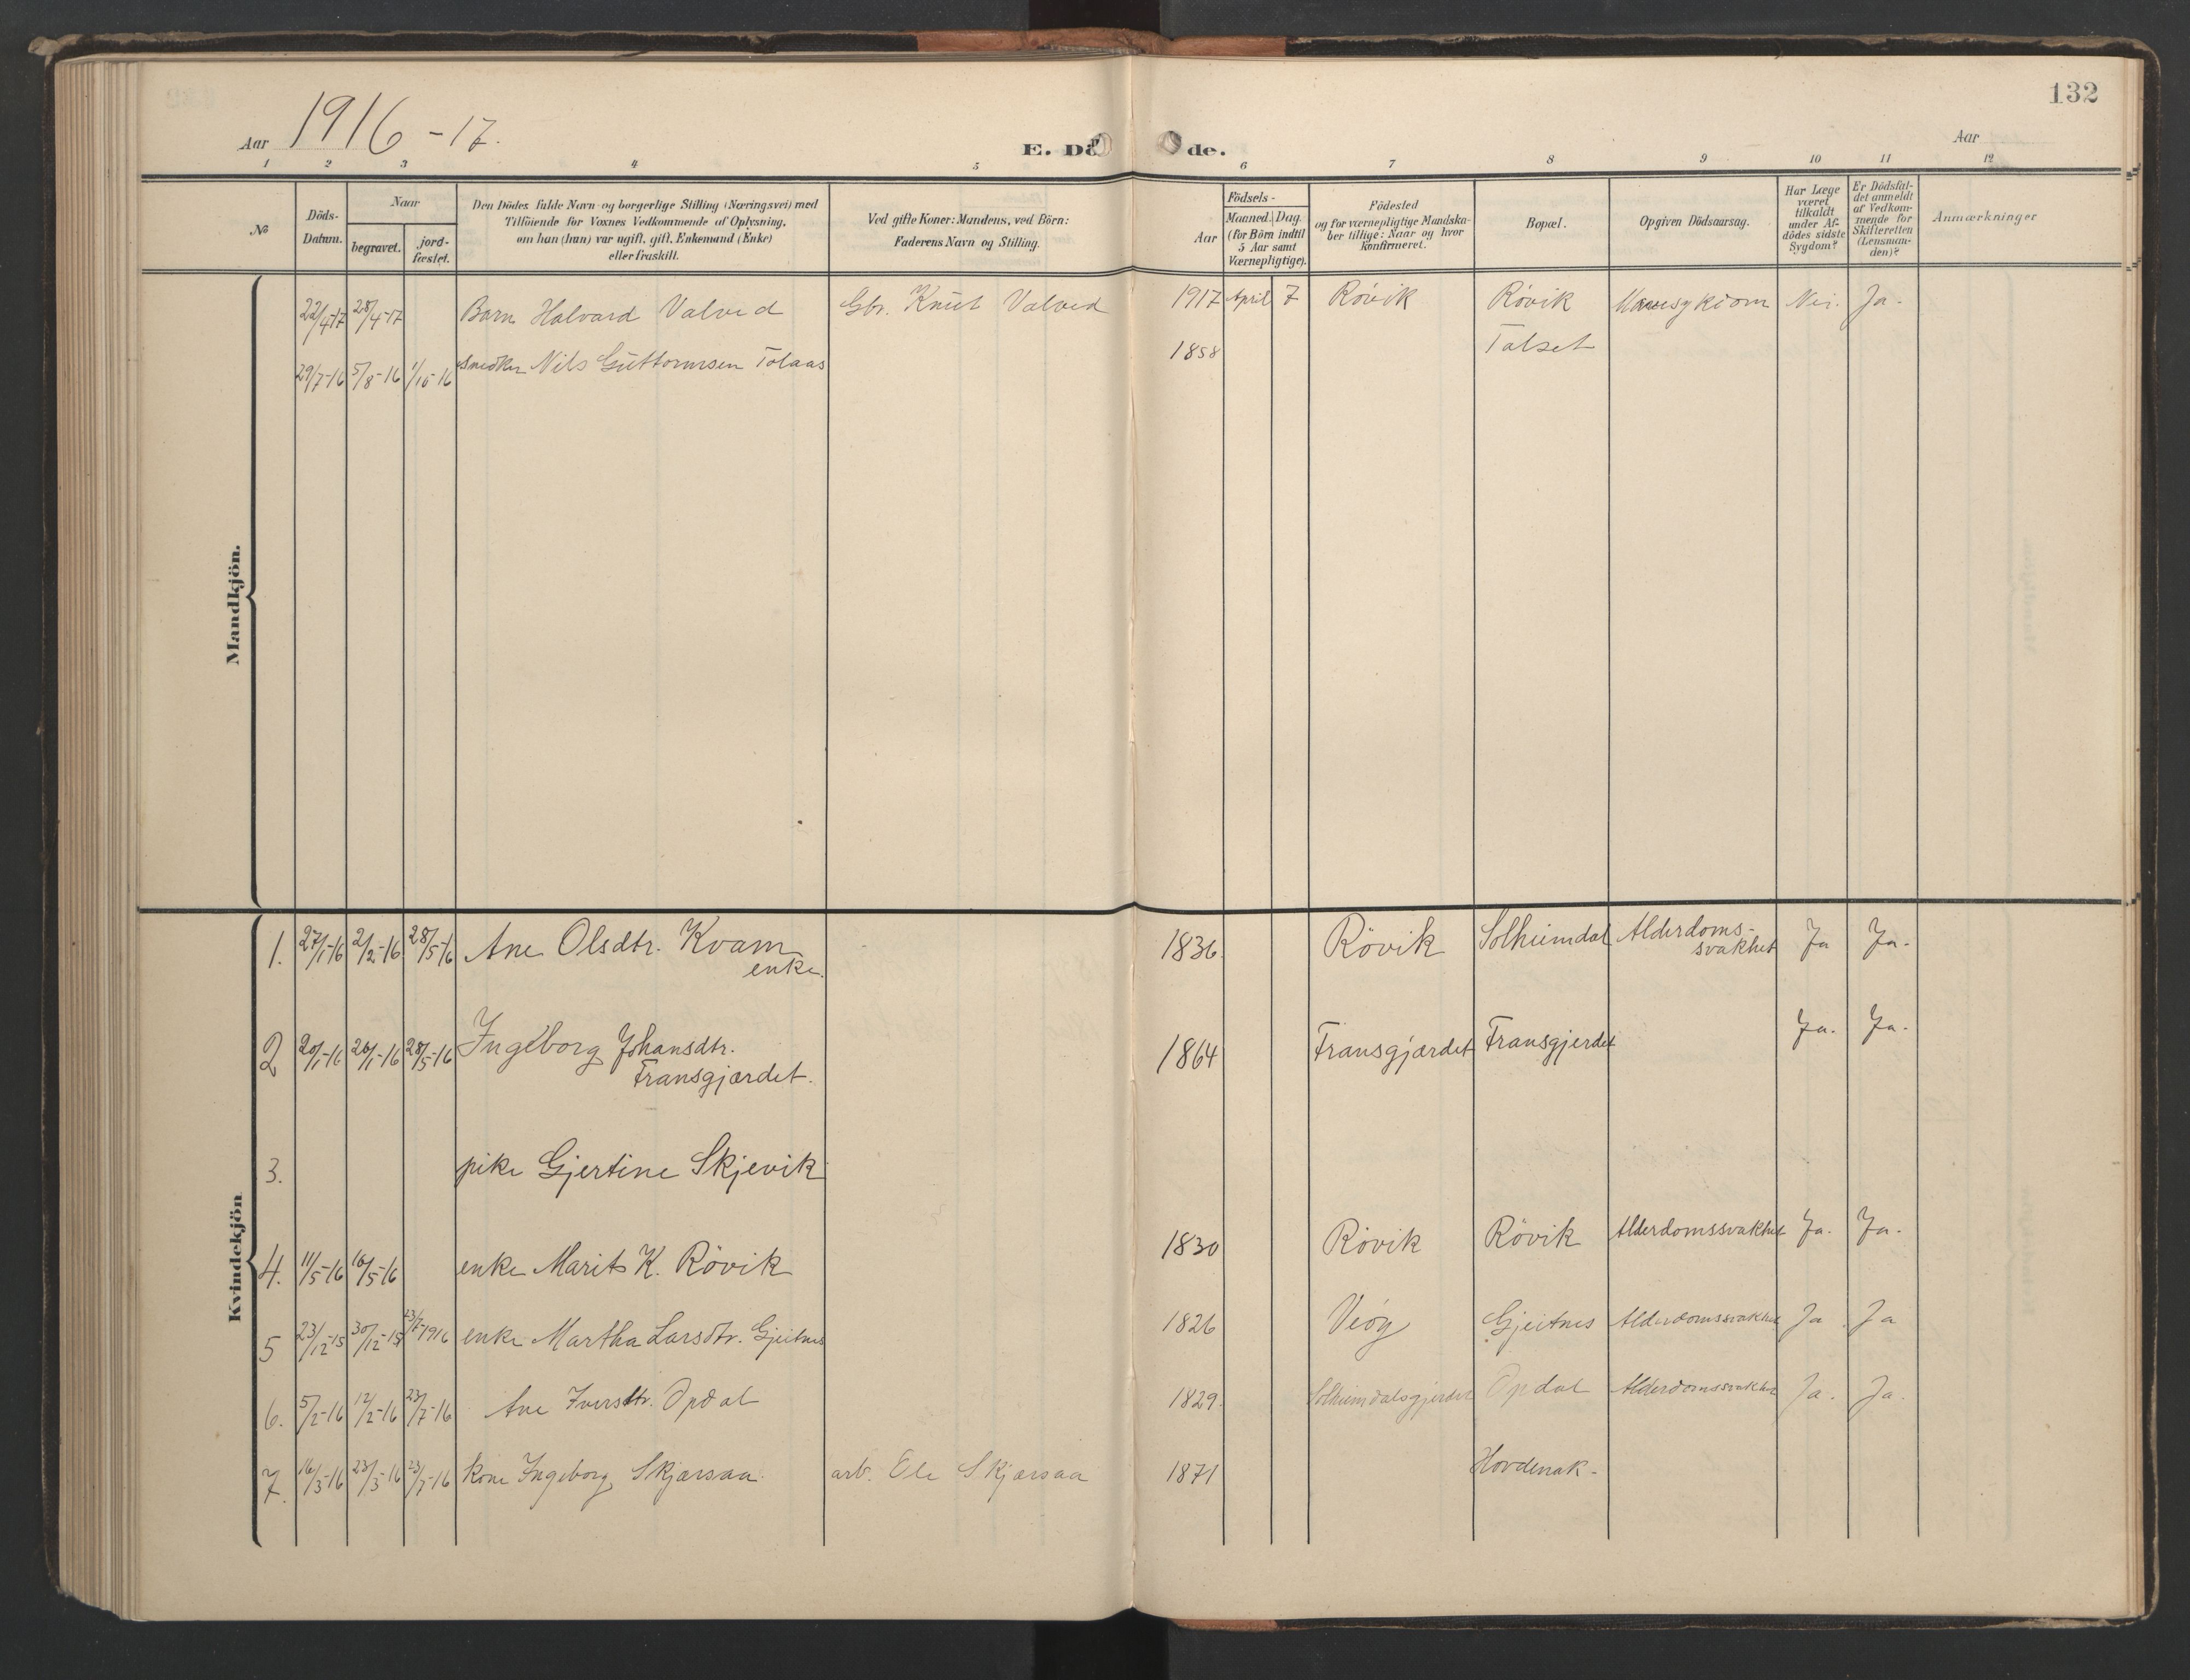 132
Aar 1916-17.
E. Döde.
Aar
1 2 3 4 5 6 7 8 9 10 11 12
№
Döds-
Datum.
Naar
begravet.
jord-
fæstet.
Den Dödes fulde Navn og borgerlige Stilling (Næringsvei) med
Tilföiende for Voxnes Vedkommende af Oplysning,
om han (hun) var ugift, gift, Enkemand (Enke)
eller fraskilt.
Ved gifte Koner: Mandens, ved Börn:
Faderens Navn og Stilling.
Födsels-
Aar
Maaned. Dag.
(for Börn indtil
5 Aar samt
Værnepligtige).
Födested
og for værnepligtige Mandska-
ber tillige: Naar og hvor
konfirmeret.
Bopæl.
Opgiven Dödsaarsag.
Har Læge
været
tilkaldt
under Af-
dödes sidste
Sygdom?
Er Dödsfal-
det anmeldt
af Vedkom-
mende for
Skifteretten
(Lensman-
den)?
Anmærkninger
Mandkjön.
22/4-17 28/4-17 Barn Halvard Valved Gbr. Knut Valved 1917 April 7 Rövik Rövik Nei. Ja.
29/7-16 5/8-16 1/10-16 Snedker Nils Guttormsen Tolaas 1858 Talset
Kvindekjön
1. 27/1-16 2/2-16 28/5-16 Ane Olsdtr. Kvam 1836. Rövik Solheimdal Alderdoms-
enke. svakhet Ja Ja.
2 20/1-16 26/1-16 28/5-16 Ingeborg Johansdtr. 1864 Fransgjærdet Fransgjerdet Ja. Ja.
Fransgjærdet.
3. pike Gjertine Skjevik
4. 11/5-16 16/5-16 enke Marit K. Rövik 1830 Rövik Rövik Alderdomssvakhet Ja. Ja.
5 23/12-15 30/12-15 23/7-1916 enke Martha Larsdtr. Gjeitnes 1826 Veöy Gjeitnes Alderdomssvakhet Ja Ja
6. 5/2-16 12/2-16 23/7-16 Ane Iversdtr. Opdal 1829. Solheimdalsgjerdet Opdal Alderdomssvakhet Ja. Ja.
7. 16/3-16 23/3-16 23/7-16 kone Ingeborg Skjærsaa. arb. Ole Skjærsaa 1871 Hovdenak-